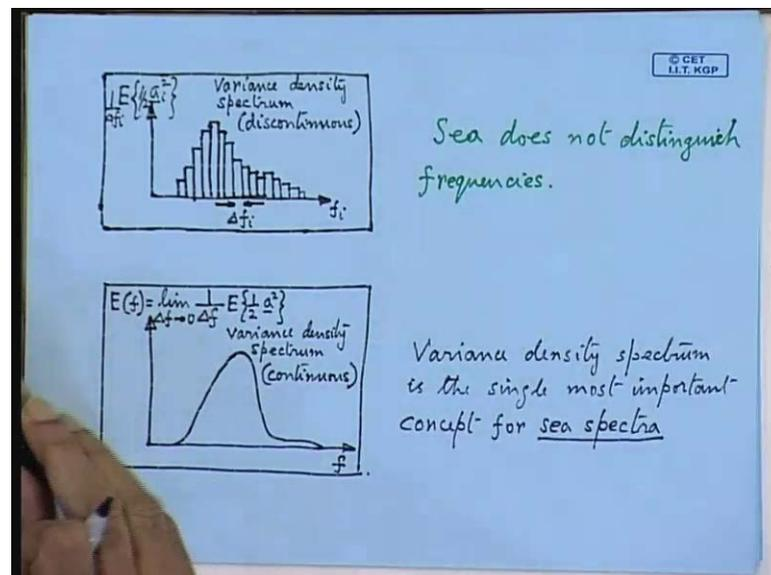 © CET
I.I.T. KGP
1/Δfi E{½ ai²}
Variance density
spectrum
(discontinuous)
fi
Δfi
Sea does not distinguish
frequencies.
E(f) = lim Δf→0 1/Δf E{½ a²}
variance density
spectrum
(continuous)
f
Variance density spectrum
is the single most important
concept for sea spectra